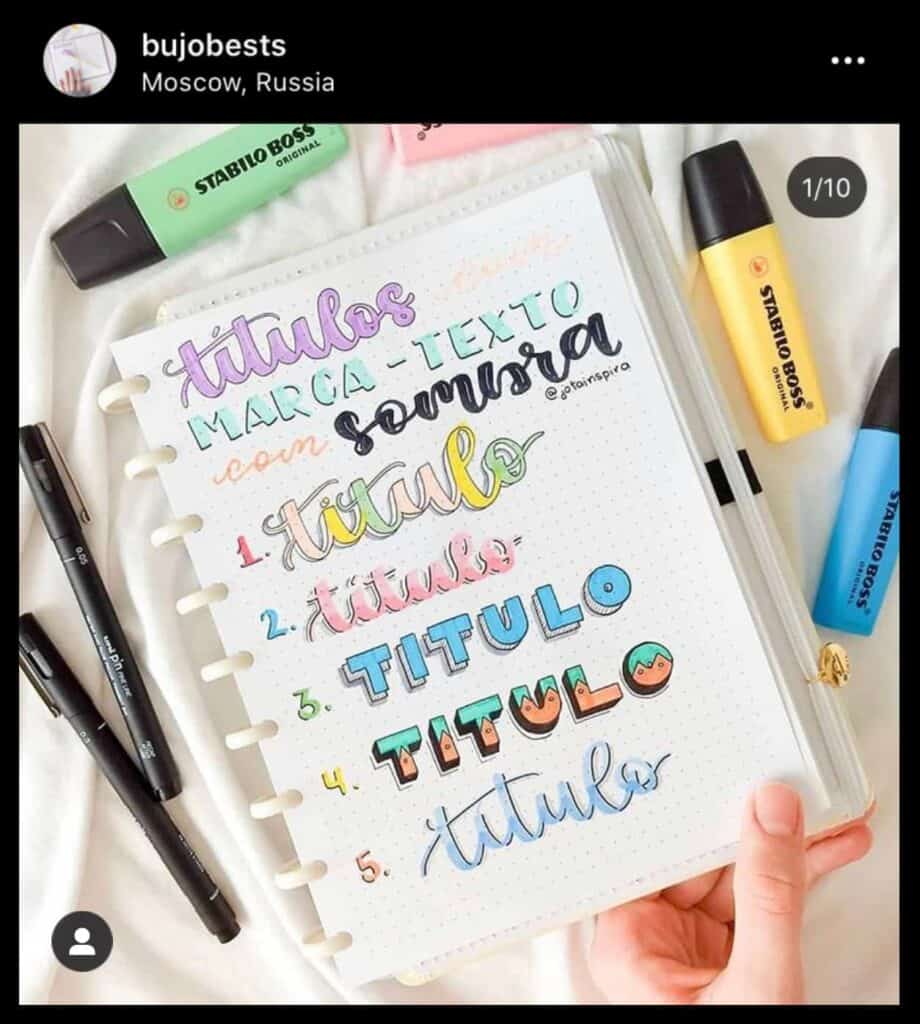 bujobests
Moscow, Russia
1/10
STABILO BOSS
ORIGINAL
STABILO BOSS
ORIGINAL
STABILO BOSS
ORIGINAL
títulos
MARCA-TEXTO
com sombra
@jotainspira
1. título
2. título
3. TITULO
4. TITULO
5. título
0.05
uni pin FINE LINE
0.3